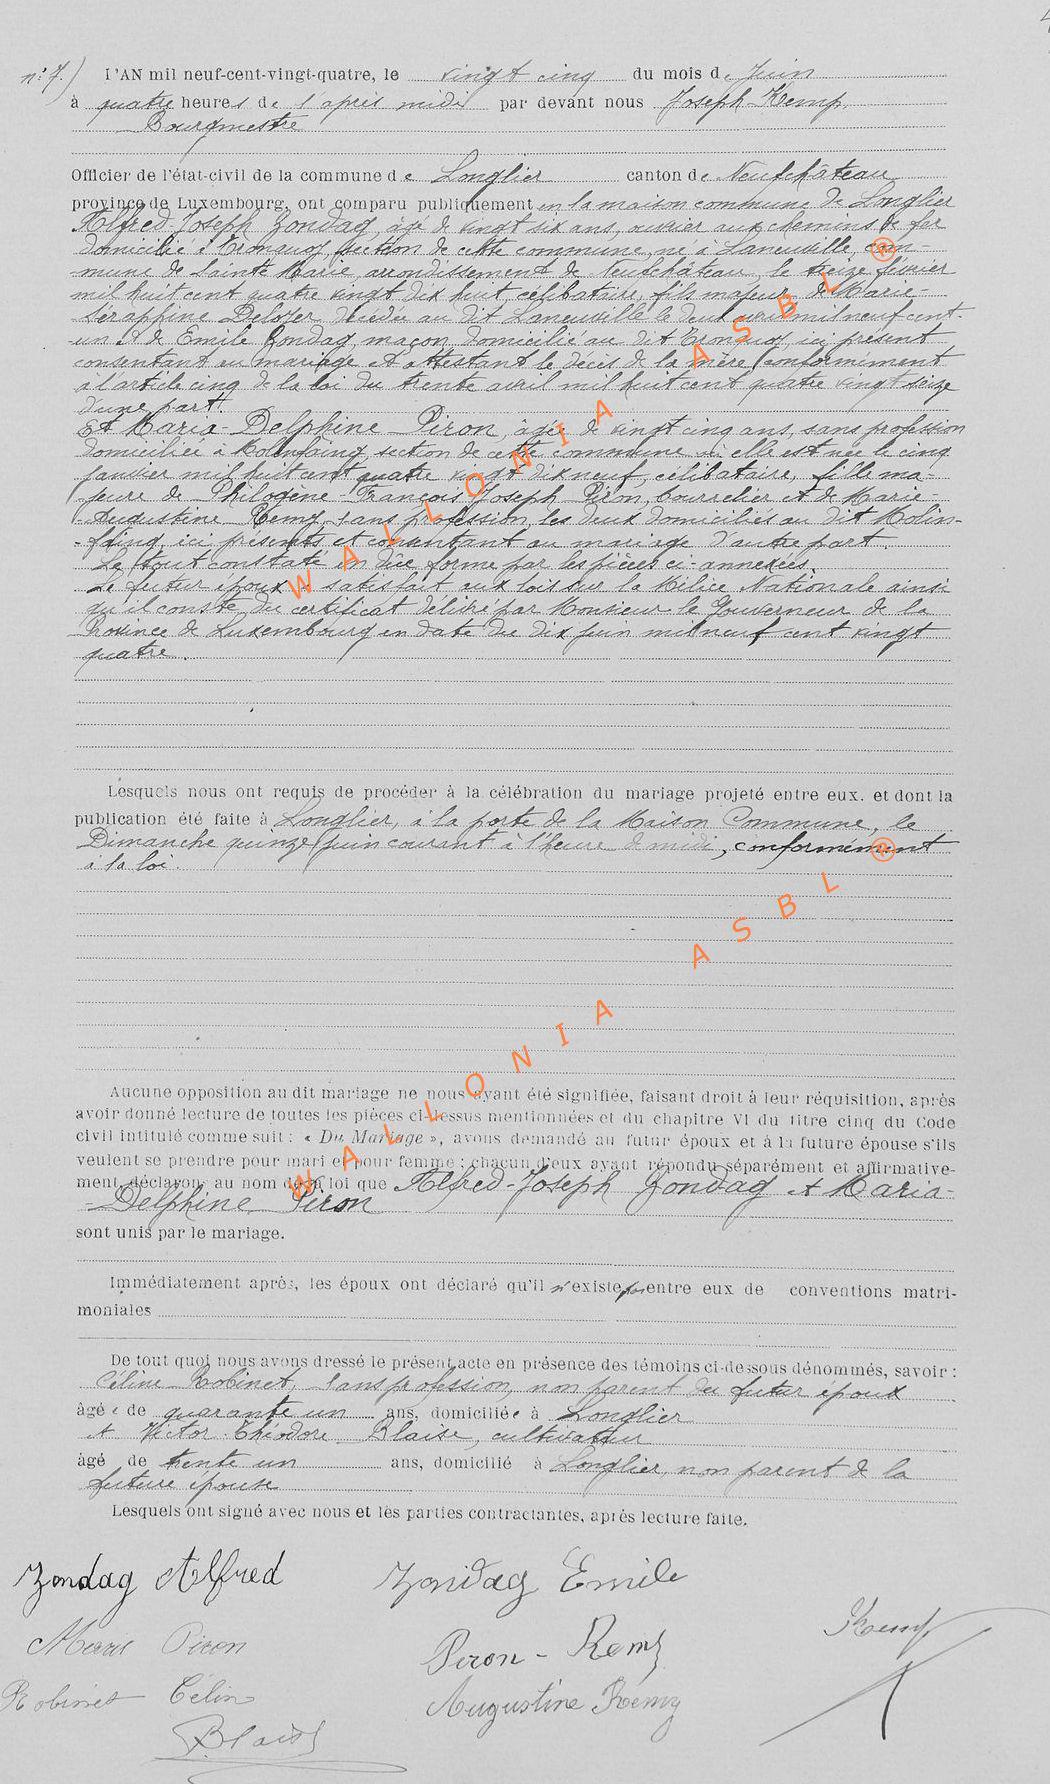 n° 7.) L'AN mil neuf-cent-vingt-quatre, le vingt cinq du mois de Juin
à quatre heures de l'après midi par devant nous Joseph Kemp,
Bourgmestre
Officier de l'état-civil de la commune de Longlier canton de Neufchâteau
province de Luxembourg, ont comparu publiquement en la maison commune de Longlier
Alfred-Joseph Zondag, âgé de vingt six ans, ouvrier aux chemins de fer
domicilié à Tronquoy, section de cette commune, né à Laneuville, com-
mune de Sainte Marie, arrondissement de Neufchâteau, le treize février
mil huit cent quatre vingt dix huit, célibataire, fils majeur de Marie-
Séraphine Delozer, décédée au dit Laneuville le deux avril mil neuf cent-
un et de Emile Zondag, maçon, domicilié au dit Tronquoy, ici présent
consentant au mariage et attestant le décès de la mère, conformément
à l'article cinq de la loi du trente avril mil huit cent quatre vingt seize
d'une part.
Et Maria-Delphine Piron, âgée de vingt cinq ans, sans profession
domiciliée à Molinfaing, section de cette commune où elle est née le cinq
janvier mil huit cent quatre vingt dix neuf, célibataire, fille ma-
jeure de Philogène-François-Joseph Piron, bourrelier et de Marie-
Augustine Remy, sans profession, les deux domiciliés au dit Molin-
-faing, ici présents et consentant au mariage d'autre part.
Le tout constaté en dûe forme par les pièces ci-annexées.
Le futur époux a satisfait aux lois sur la Milice Nationale ainsi
qu'il conste du certificat délivré par Monsieur le Gouverneur de la
Province de Luxembourg en date du dix juin mil neuf cent vingt
quatre.
Lesquels nous ont requis de procéder à la célébration du mariage projeté entre eux. et dont la
publication été faite à Longlier, à la porte de la Maison Commune, le
Dimanche quinze juin courant à l'heure de midi, conformément
à la loi.
Aucune opposition au dit mariage ne nous ayant été signifiée, faisant droit à leur réquisition, après
avoir donné lecture de toutes les pièces ci-dessus mentionnées et du chapitre VI du titre cinq du Code
civil intitulé comme suit : « Du Mariage », avons demandé au futur époux et à la future épouse s'ils
veulent se prendre pour mari et pour femme ; chacun d'eux ayant répondu séparément et affirmative-
ment, déclaron, au nom de la loi que Alfred-Joseph Zondag et Maria-
-Delphine Piron
sont unis par le mariage.
Immédiatement après, les époux ont déclaré qu'il n'existe pas entre eux de conventions matri-
moniales
De tout quoi nous avons dressé le présent acte en présence des témoins ci-dessous dénommés, savoir :
Céline Robinet, sans profession, non parent du futur époux
âgée de quarante un ans, domiciliée à Longlier
et Victor-Théodore Blaise, cultivateur
âgé de trente un ans, domicilié à Longlier, non parent de la
future épouse
Lesquels ont signé avec nous et les parties contractantes, après lecture faite.
Zondag Alfred Zondag Emile
Maria Piron Piron-Remy Kemp
Robinet Célin Augustine Remy
Blaise
WALLONIA ASBL ®
WALLONIA ASBL ®